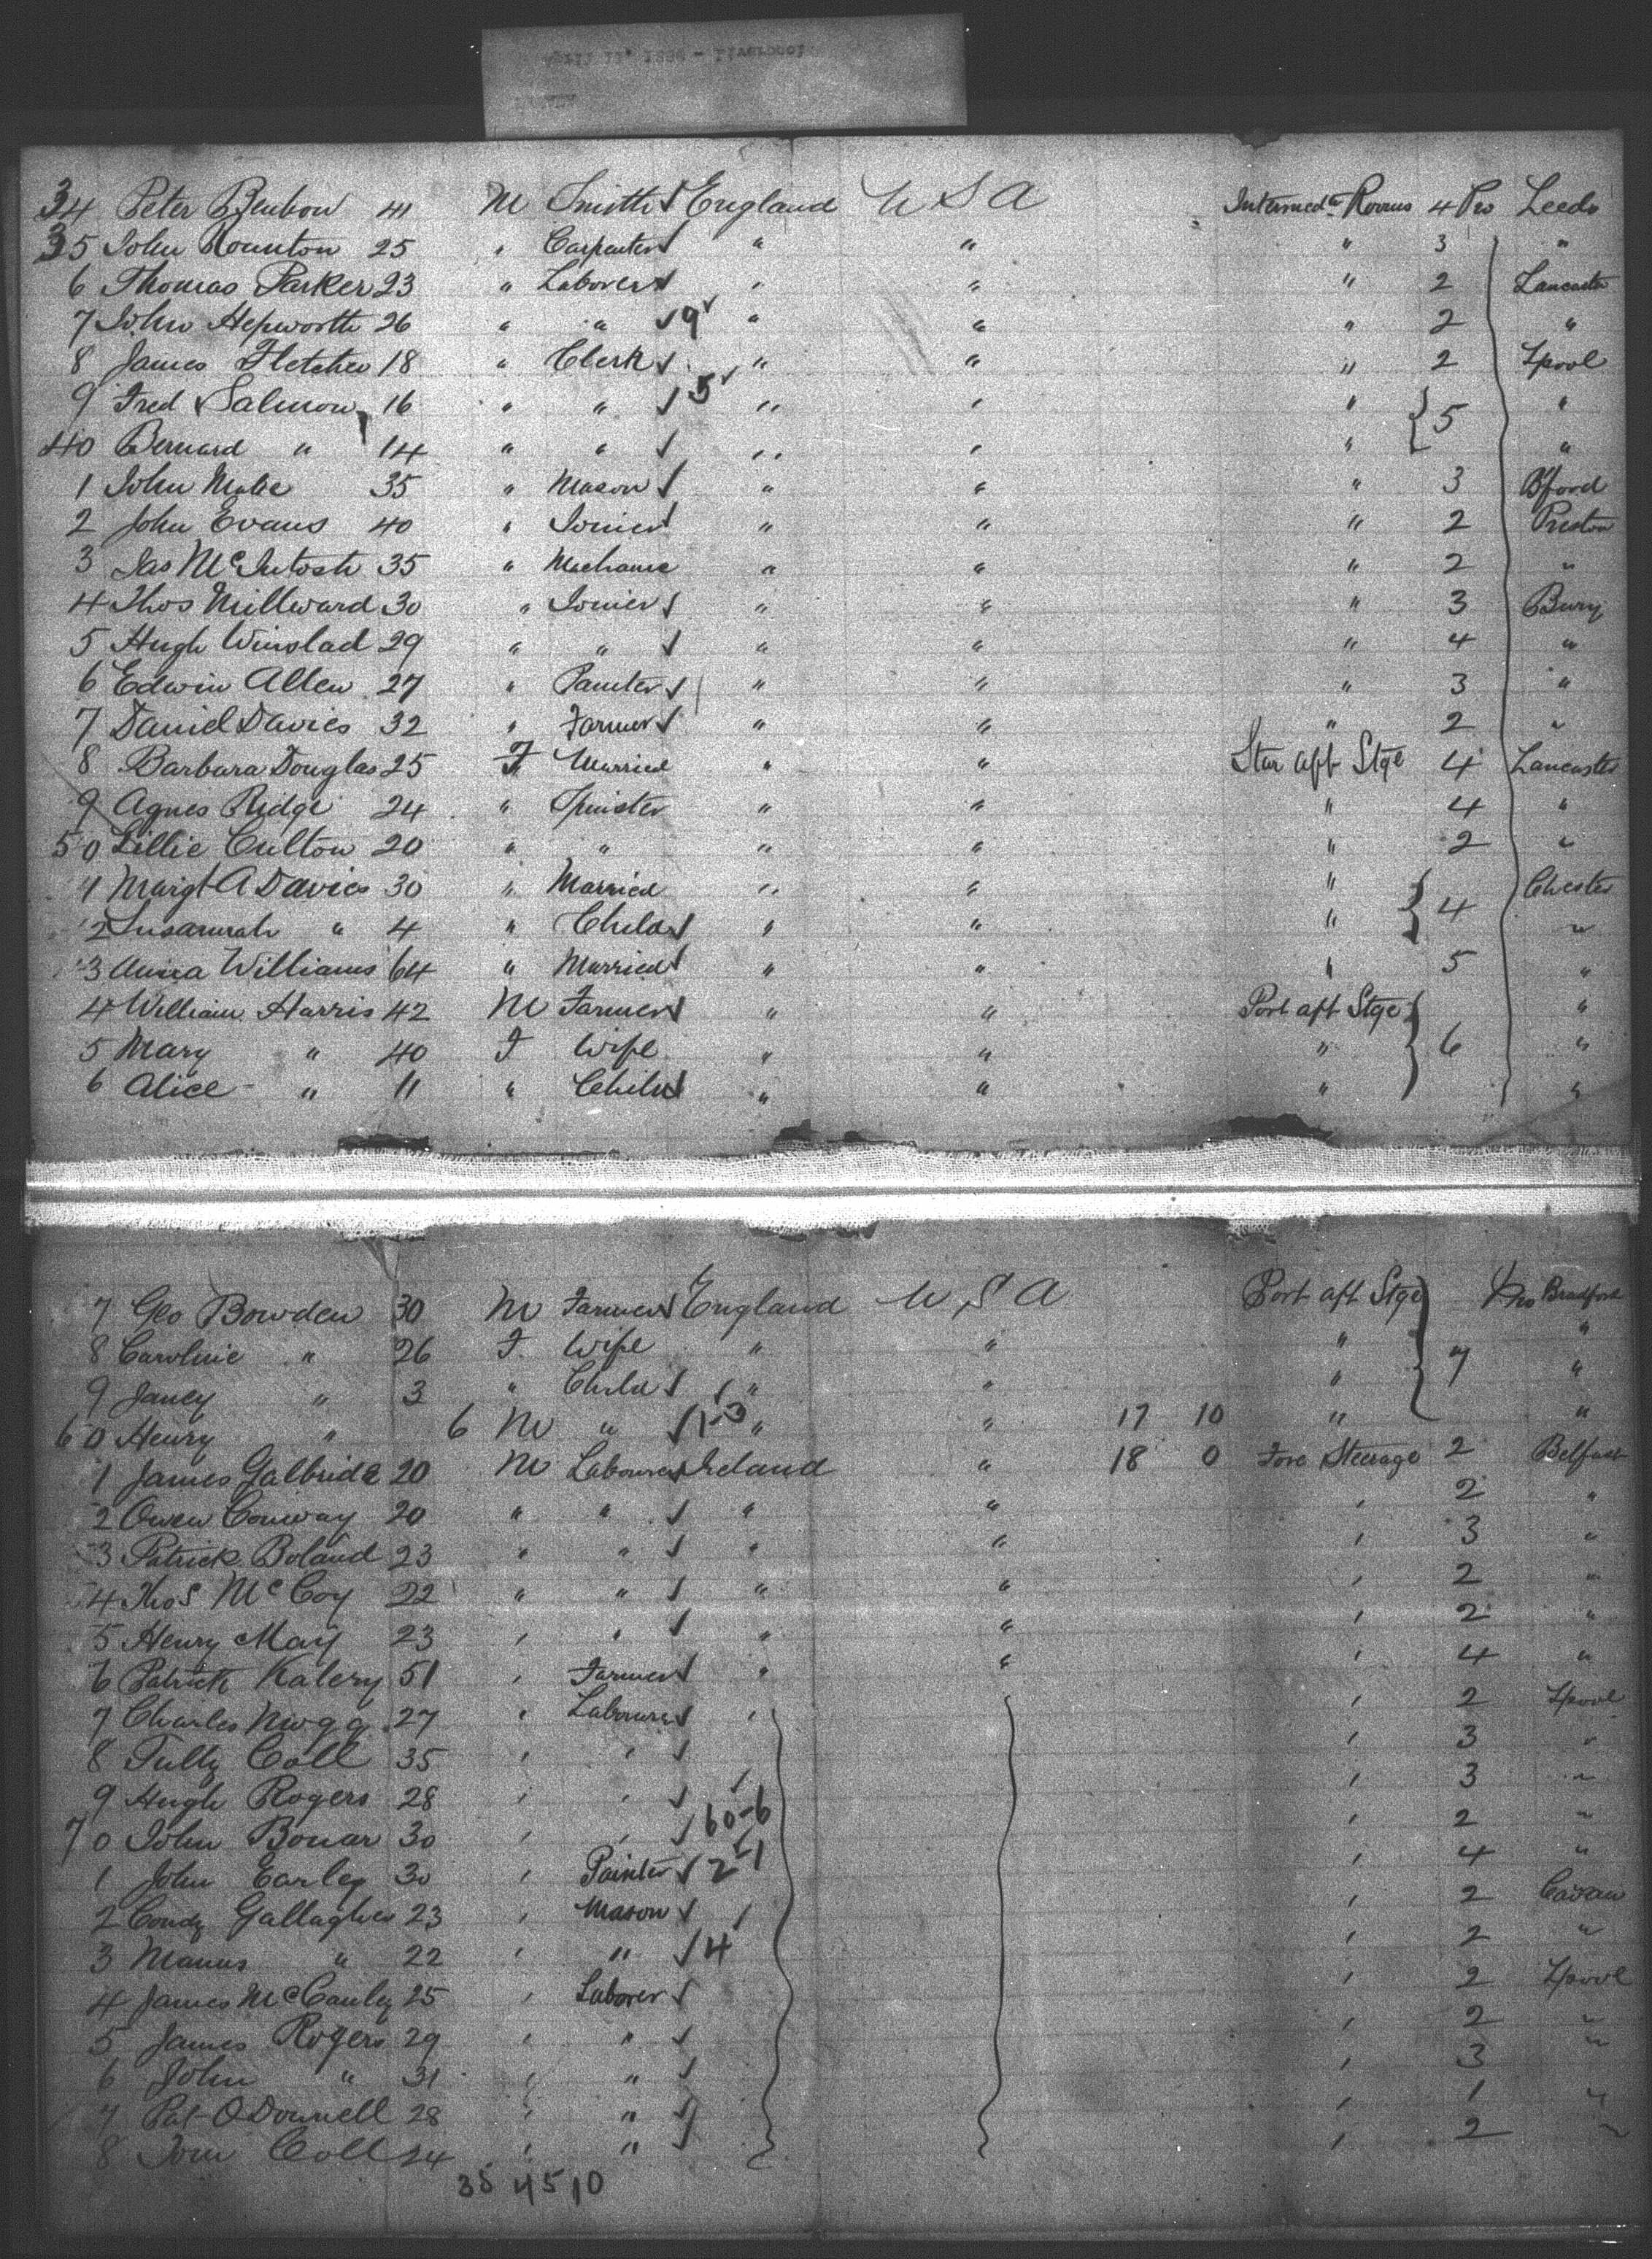 34 Peter Benbow 41 M Smith England U S A Intermedte Rooms 4 Pro Leeds
35 John Rounton 25 " Carpenter " " " 3 "
6 Thomas Parker 23 " Laborer " " " 2 Lancaster
7 John Hepworth 26 " " 9 " " " 2 "
8 James Fletcher 18 " Clerk " " " 2 Lpool
9 Fred Salmon 16 " " 5 " " " 5 "
40 Bernard " 14 " " " " " "
1 John Mabe 35 " Mason " " " 3 Bford
2 John Evans 40 " Joiner " " " 2 Preston
3 Jas McIntosh 35 " Mechanic " " " 2 "
4 Thos Millward 30 " Joiner " " " 3 Bury
5 Hugh Winslad 29 " " " " " 4 "
6 Edwin Allen 27 " Painter " " " 3 "
7 Daniel Davies 32 " Farmer " " " 2 "
8 Barbara Douglas 25 F Married " " Star aft Stge 4 Lancaster
9 Agnes Ridge 24 " Spinster " " " 4 "
50 Lillie Culton 20 " " " " " 2 "
1 Margt A Davies 30 " Married " " " 4 Chester
2 Susannah " 4 " Child " " " "
3 Anna Williams 64 " Married " " " 5 "
4 William Harris 42 M Farmer " " Port aft Stge 6 "
5 Mary " 40 F Wife " " " "
6 Alice " 11 " Child " " " "
7 Geo Bowden 30 M Farmer England U S A Port aft Stge 7 Pro Bradford
8 Caroline " 26 F Wife " " " "
9 Janey " 3 " Child " " " "
60 Henry " 6 M " 1-3 " " 17 10 " "
1 James Galbride 20 M Labourer Ireland " 18 0 Fore Steerage 2 Belfast
2 Owen Conway 20 " " " " " 2 "
3 Patrick Boland 23 " " " " " 3 "
4 Thos McCoy 22 " " " " " 2 "
5 Henry May 23 " " " " " 2 "
6 Patrick Kalery 51 " Farmer " " " 4 "
7 Charles 27 " Labourer " " 2 Lpool
8 Tully Coll 35 " " " 3 "
9 Hugh Rogers 28 " " " 3 "
70 John Bonar 30 " " 60-6 " 2 "
1 John Earley 30 " Painter 2-1 " 4 "
2 Condy Gallagher 23 " Mason " 2 Cavan
3 Manus " 22 " " 4 " 2 "
4 James McCauley 25 " Laborer " 2 Lpool
5 James Rogers 29 " " " 2 "
6 John " 31 " " " 3 "
7 Pat O Donnell 28 " " " 1 "
8 Coll 24 " " " 2 "
35 45 10